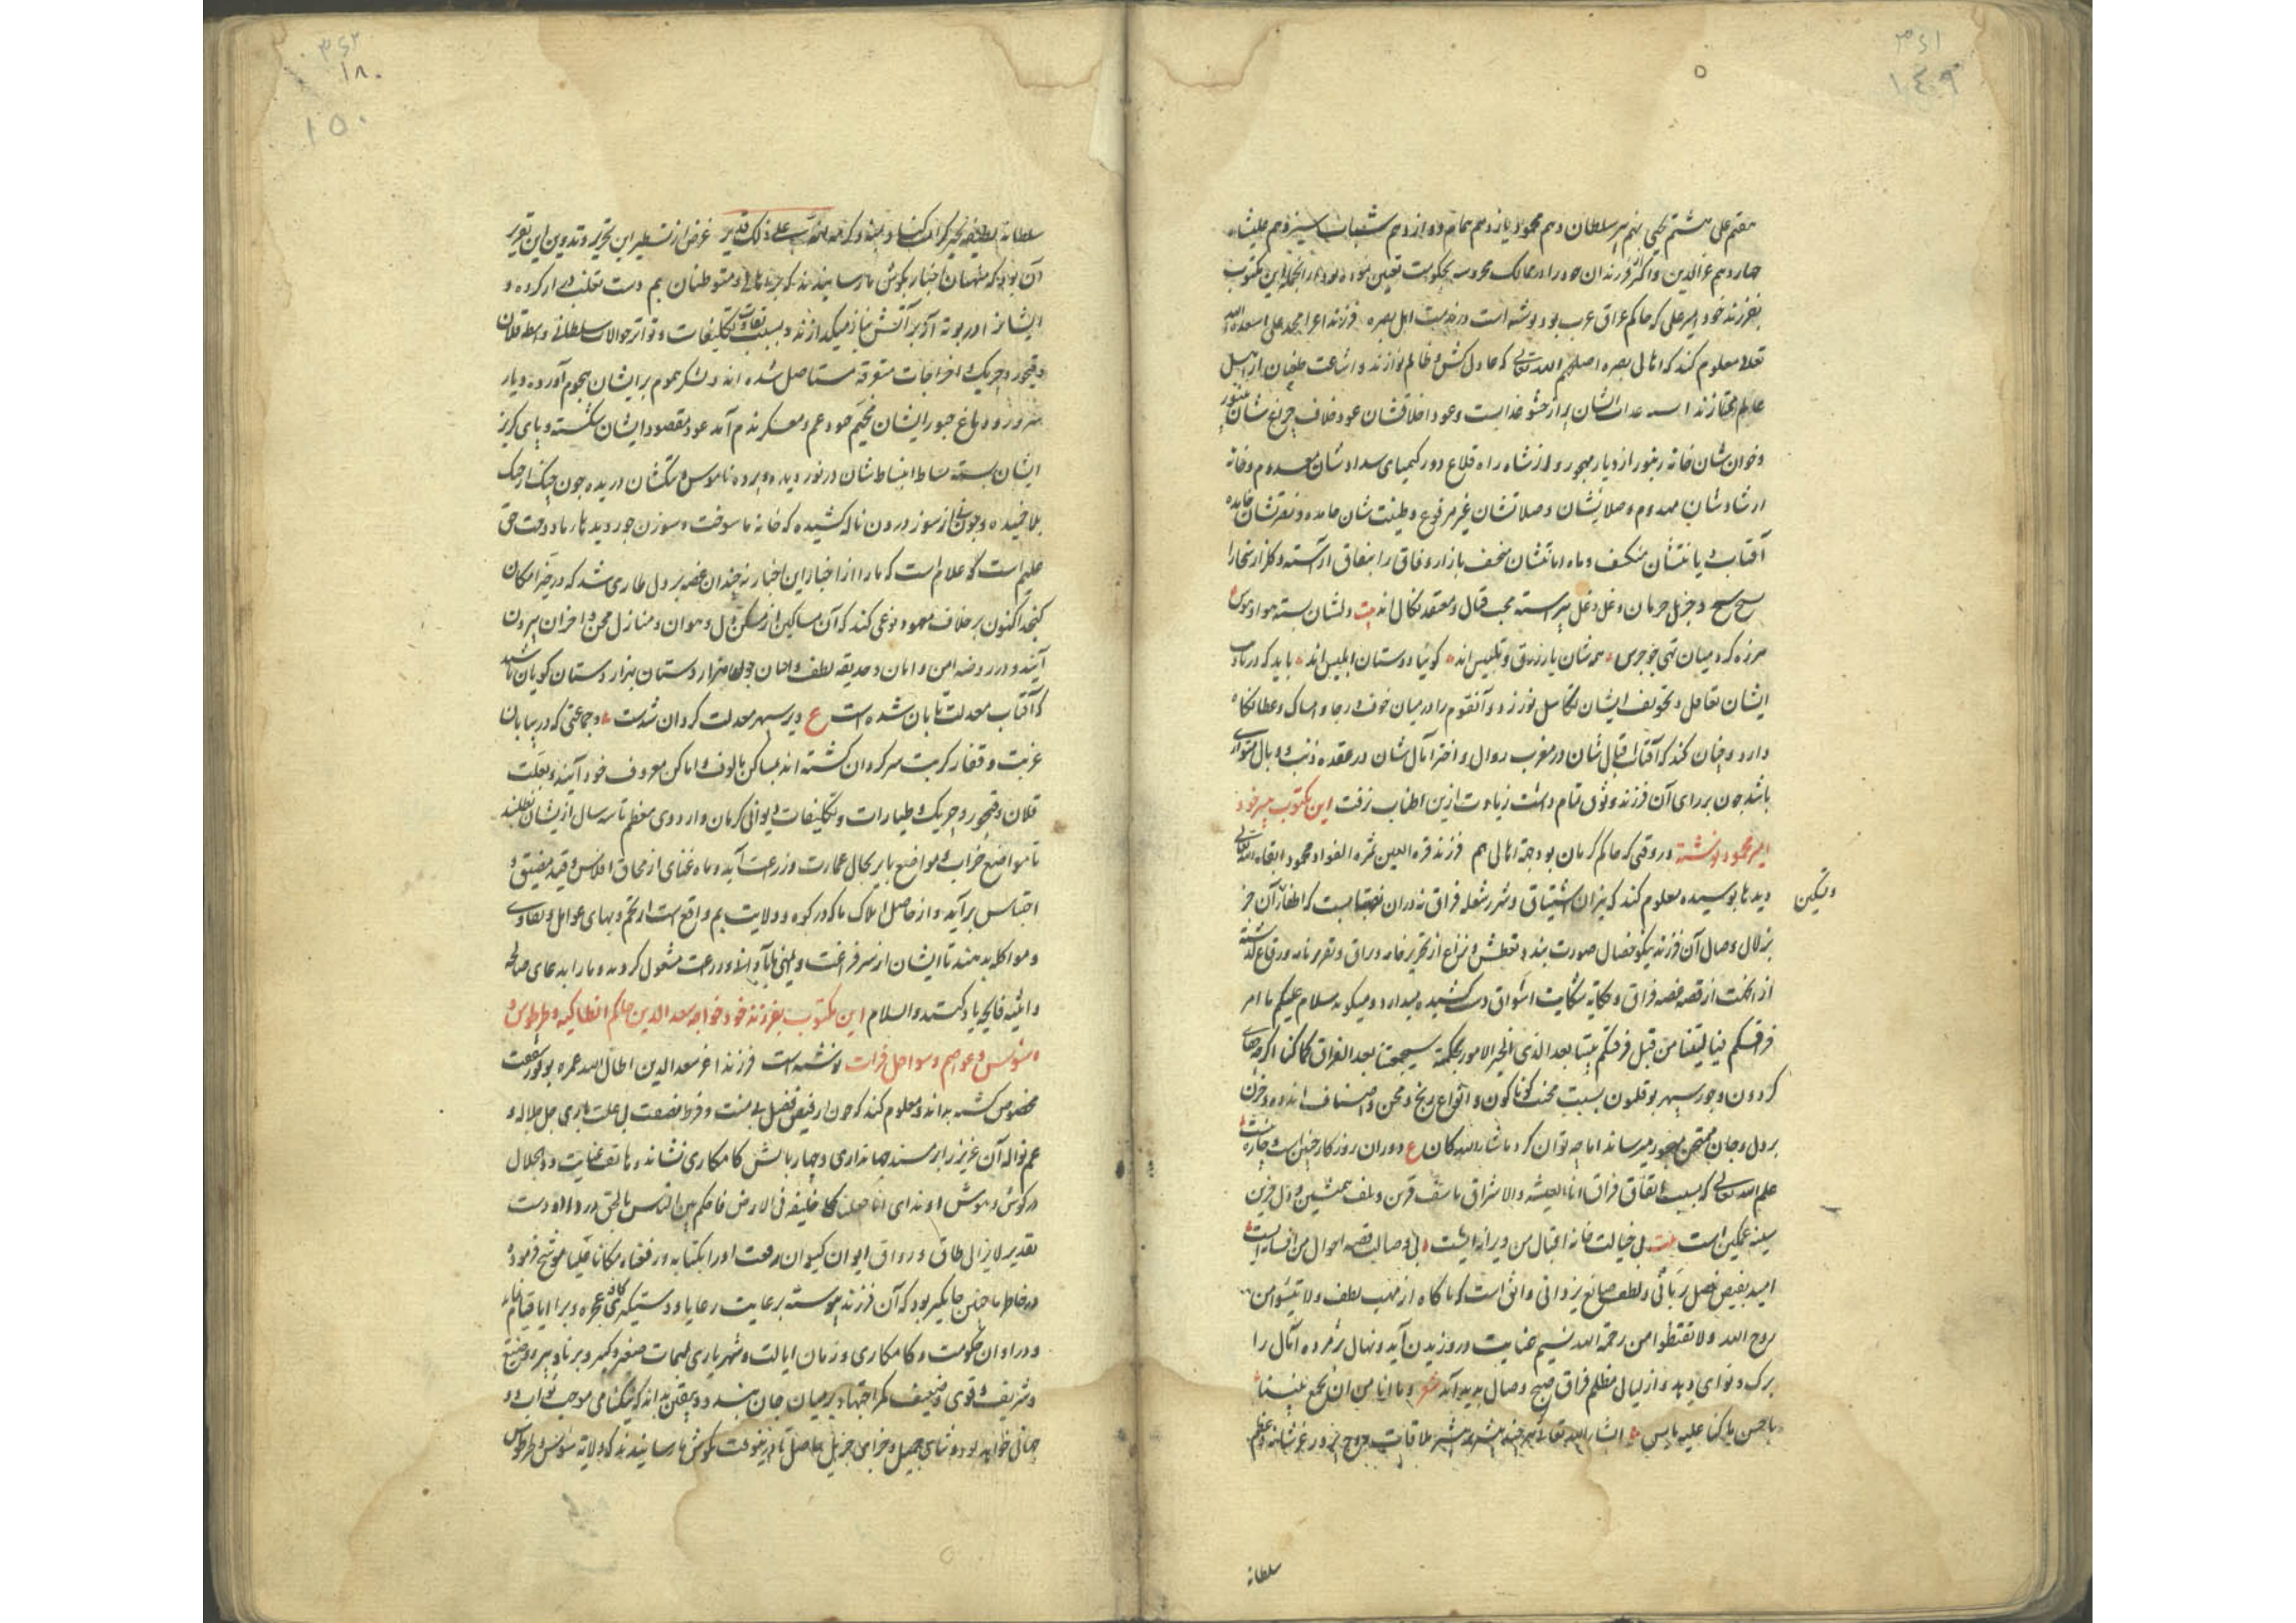 ۳۶۱
۱۴۹
هفتم علی هشتم یحیی نهم پیر سلطان دهم محمود یازدهم همام دوازدهم شهاب سیزدهم علیشاه
چهاردهم عزالدین و اکثر فرزندان خود را در ممالک محروسه بحکومت تعیین نموده بود از انجمله این مکتوب
بفرزند خود امیر علی که حاکم عراق عرب بود نوشته است در مذمت اهل بصره فرزند اعز امجد علی اسعده الله
تعالی معلوم کند که اهالی بصره اصلحهم الله تعالی که عادل کش و ظالم نوازند و اشاعت طغیان از اهل
وخوان شان خانه زنبور از دیار مهجور و از شاه راه فلاح دور کیمیای سداد شان معدوم و خانه
ارشاد شان مهدوم و صلاتشان غیر مرفوع و طینت شان
آفتاب دیانتشان منکسف و ماه امانتشان منخسف بازار وفاق را بنفاق آراسته و گلزار سخا را
و غل و دغل پیراسته محب قتال و معتقد نکال اند بیت دلشان بسته هوا و هوس
هرزه گرد میان تهی چو جرس همه شان یار زرق و تلبیس اند گوئیا دوستان ابلیس اند باید که در باب
ایشان تغافل و تخویف ایشان تکاسل نورزد و آنقوم را در میان خوف و رجا و امساک و عطا نگاه
دارد و چنان کند که آفتاب اقبال شان در مغرب زوال و اختر آمال شان در عقده ذنب و وبال متواری
باشد چون بر رای آن فرزند وثوق تمام داشت زیادت ازین اطناب نرفت این مکتوب پسر خود
امیر محمود نوشته در وقتی که حاکم کرمان بود جهة اهالی بم فرزند قرة العین ثمرة الفواد محمود ابقاه الله تعالی
دیدها بوسیده معلوم کند که نیران اشتیاق و شرر شعله فراق نه دران که اطفای آن جز
وتسکین
بزلال وصال آن فرزند نیکو خصال صورت بندد و تعطش و نزاع از تحریر خامه و براق و تقریر نامه و رقاع گذشته
از قصه غصه فراق و حکایه شکایت اشواق دست کشیده میدارد و میگوید سلام علیکم ما امر
فراقکم فیا لیتنا من قبل فرقتکم متنا بعد الذی الامور بحکمة سیجمعنا بعد الفراق کما کنا اگرچه جفای
گردون و جور سپهر بوقلمون بسبب محنت گوناگون و انواع رنج و محن و اصناف اندوه و حزن
بر دل و جان ممتحن مهجور میرساند اما چه توان کرد ما شاء الله کان ع دوران روزگار چنین است چاره نیست
علم الله تعالی که بسبب اتفاق فراق انا العشیة والاشراق تاسف قرین و تلهف همنشین و دل حزین
سینه غمگین است بیت بی خیالت خانه اقبال من ویرانه ایست بی وصالت قصه احوال من افسانه ایست
امید بفیض فضل ربانی و لطف صانع یزدانی واثق است که ناگاه از مهب لطف ولا تیئسوا من
روح الله ولا تقنطوا من رحمة الله نسیم عنایت در وزیدن آید و نهال پژمرده آمال را
برگ و نوای دهد و از لیال مظلم فراق صبح وصال پدید آید شعر و ما انا من ان یجمع بیننا
باحسن ما کنا علیه بایس انشاء الله تعالی هر چند بیشتر میسر بملاقات
سلطانه
۳۶۲
۱۸۰
۱۵۰
سلطانه علی ذلک قدیر غرض از تسطیر این تحریر و تدوین این تقریر
آن بود که منهیان اخبار بگوش ما رسانیدند که بر اهالی و متوطنان بم دست تغلب دراز کرده و
ایشانرا در بوته آز بر آتش نیاز میگدازند و بسبب تفاوت تکلیفات و تواتر حوالات سلطانی و اسطه قلان
و قبچور و چریک و اخراجات متفرقه مستاصل شده اند و لشکر هموم بر ایشان هجوم آورده و دیار
سرور و دماغ حبور ایشان مخیم جنود غم و معسکر ندم آمد عود مقصود ایشان شکسته و پای گریز
ایشان بسته بساط انبساط شان در نوردیده و پرده ناموس و ننگشان دریده چون چنگ از جنگ
بلا خمیده و چون نی از سوز درون ناله کشیده که خانه ما سوخت و سوزن جور دیدهای ما دوخت حق
علیم است و علام است که ما را از اخبار این اخبار نه چندان غصه بر دل طاری شد که در حیز امکان
گنجد اکنون بر خلاف معهود نوعی کند که آن مساکین از مسکن ذل و هوان و منازل محن و احزان بیرون
آیند و در روضه امن و امان و حدیقه لطف و احسان چون هزار دستان هزار دستان گویان باشند
که آفتاب معدلت تابان شده است ع و بر سپهر معدلت گردان شدست و جماعتی که در بیابان
غربت و قفار کربت سرگردان گشته اند بمساکن مالوف و اماکن معروف خود آیند و بعلت
قلان و قبچور و چریک و طیارات و تکلیفات دیوانی کرمان و اردوی معظم تا سه سال ازیشان نطلبند
تا مواضع خراب و مواضع بایر بحال عمارت و زراعت آید و ماه غنای از محاق افلاس و قید مضیق و
احتباس برآید و از حاصل املاک ما که در کوره و ولایت بم واقع است از تخم و بهای عوامل و تقاوی
و مواکله بدهند تا ایشان از سر فراغت و بآبادانی و زراعت مشغول گردند و ما را بدعای صالحه
و اثنیه فایحه یاد کنند والسلام این مکتوب بفرزند خود خواجه سعد الدین حاکم انطاکیه و طرطوس و
سوس و عواصم و سواحل فرات نوشته است فرزند اعز سعد الدین اطال الله عمره
مخصوص گشته بداند و معلوم کند که چون از فیض فضل بی منت و فرط نصفت بی علت باری جل جلاله و
عم نواله آن عزیز را بر مسند جهانداری و چهار بالش کامکاری نشاند و هاتف عنایت ذوالجلال
در گوش و هوش او ندای انا جعلناک خلیفة فی الارض فاحکم بین الناس بالحق در داد و دست
تقدیر لایزال طاق و رواق ایوان کیوان رفعت او را بکتابه ورفعناه مکانا علیا موشح فرموده
در خاطر ما چنین جایگیر بود که آن فرزند پیوسته برعایت رعایا و دستگیری کافه عجزه و برایا قیام نماید
و در اوان حکومت و کامکاری و زمان ایالت و شهریاری بمهمات صغیر و کبیر و برنا و پیر و وضیع
و شریف و قوی و ضعیف کمر اجتهاد بر میان جان بندد و یقین بداند که نیکنامی موجب ثواب دو
جهانی خواهد بود و ثنای جمیل و جزای جزیل حاصل تا درینوقت بگوش ما رسانیدند که ولایة سوس و طرطوس